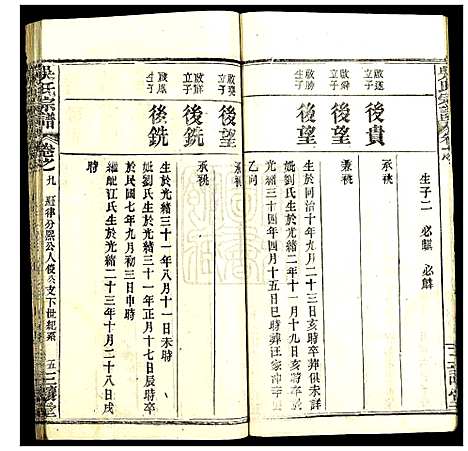 生子二 必麒 必麟
後貴
承祧
啟舜立子
後望
兼祧
啟勝生子
後望
生於同治十年九月二十三日亥時卒葬俱未詳
娶劉氏生於光緒二年十一月初六日亥時卒
光緒三十四年四月十五日巳時葬汪家冲
乙向
立子
後望
承祧
啟鮮立子
後銑
承祧
啟應生子
後銑
生於光緒三十一年八月十一日未時
娶劉氏生於光緒三十一年正月十七日辰時卒
於民國七年九月初三日申時
繼配江氏生於光緒二十三年十月二十八日戌
時
吳氏宗譜
卷之九
公人俊公支下世紀系
五
三讓堂